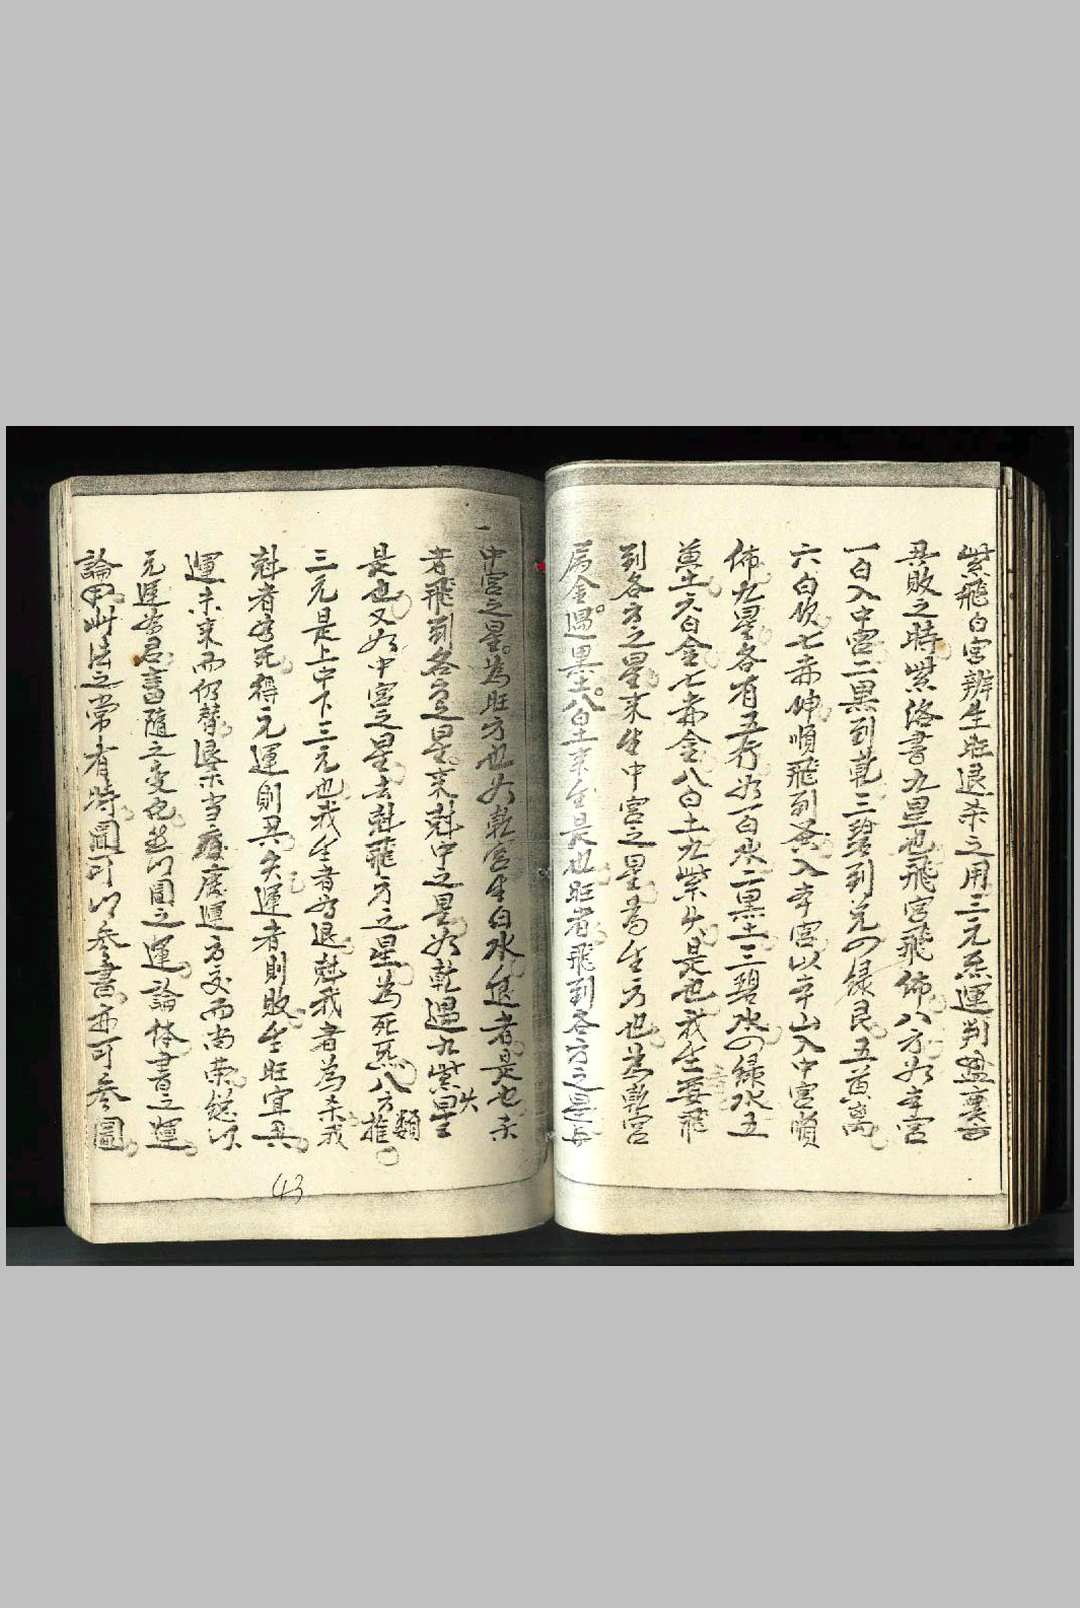 紫飛白宮辨生旺退杀之用三元氣運判盛衰
興敗之時紫洛書九星也飛宮飛佈八方如本宮
一白入中宮二黑到乾三碧到兌四綠艮五黃离
六白坎七赤坤順飛到 入本宮以本山入中宮順
佈九星各有五行如一白水二黑土三碧水四綠水五
黃土六白金七赤金八白土九紫火是也我生要飛
到各方之星来生中宮之星為生方也為乾宮
属金遇二黑土八白土来生是也旺者飛到各方之星与
中宮之星為旺方也如乾宮 白水 者是也杀
者飛到各方之星来尅中之星如乾遇九紫火星
是也又如中宮之星去尅飛方之星為死炁八方類推
三元是上中下三元也我生者為退尅我者為杀我
尅者為死得元運則興失運者則敗生旺宜興
運未来而仍替退杀当廢 運方交而尚荣総以
元運為君書隨之变也然以圖之運論体書之運
論用此法之常有時圖可以参書亦可参圖
43